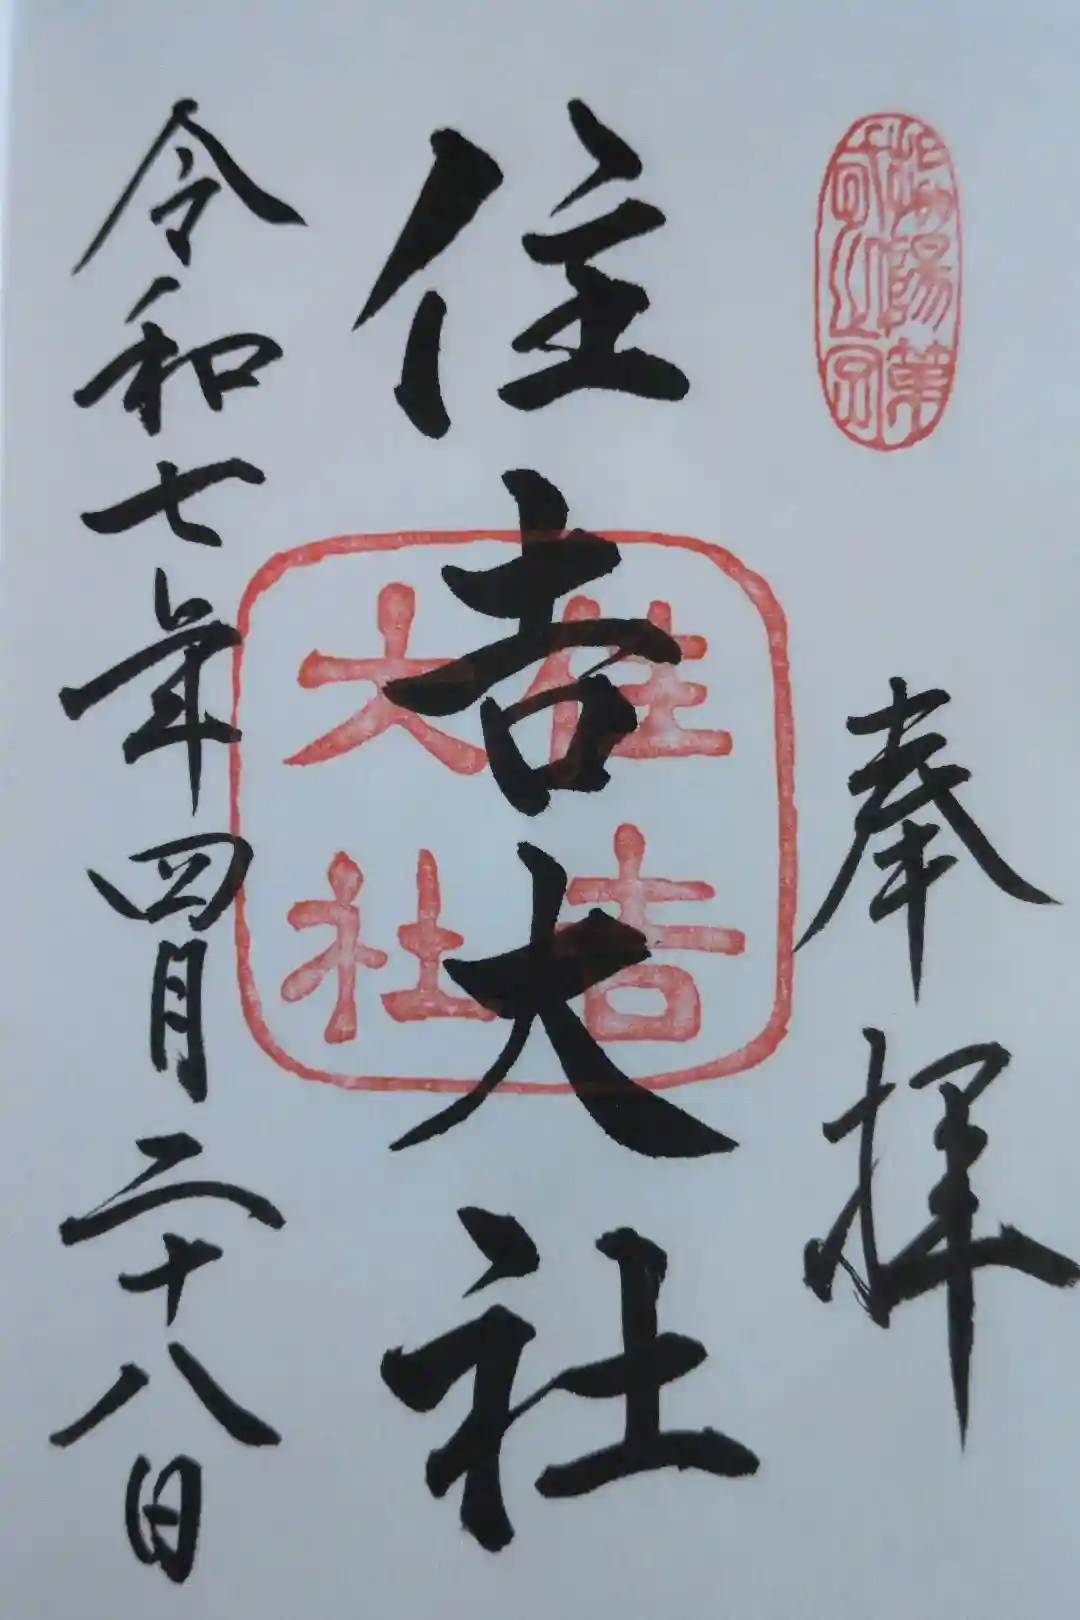 奉拝
住吉大社
住吉
大社
令和七年四月二十八日